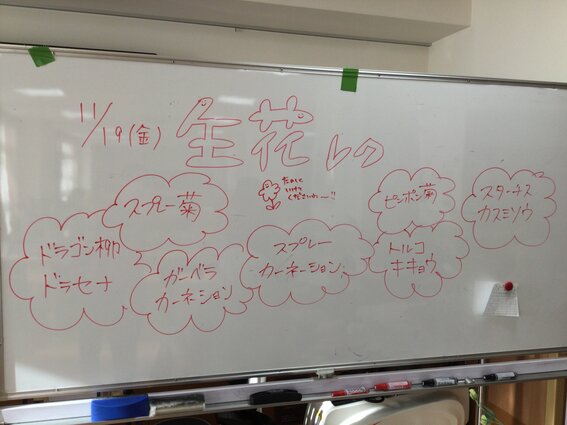 11/19(金) 生花 レク
たのしく
いけて
くださいね〜!!
スプレー菊
ドラゴン柳
ドラセナ
ガーベラ
カーネーション
スプレー
カーネーション
ピンポン菊
トルコ
キキョウ
スターチス
カスミソウ